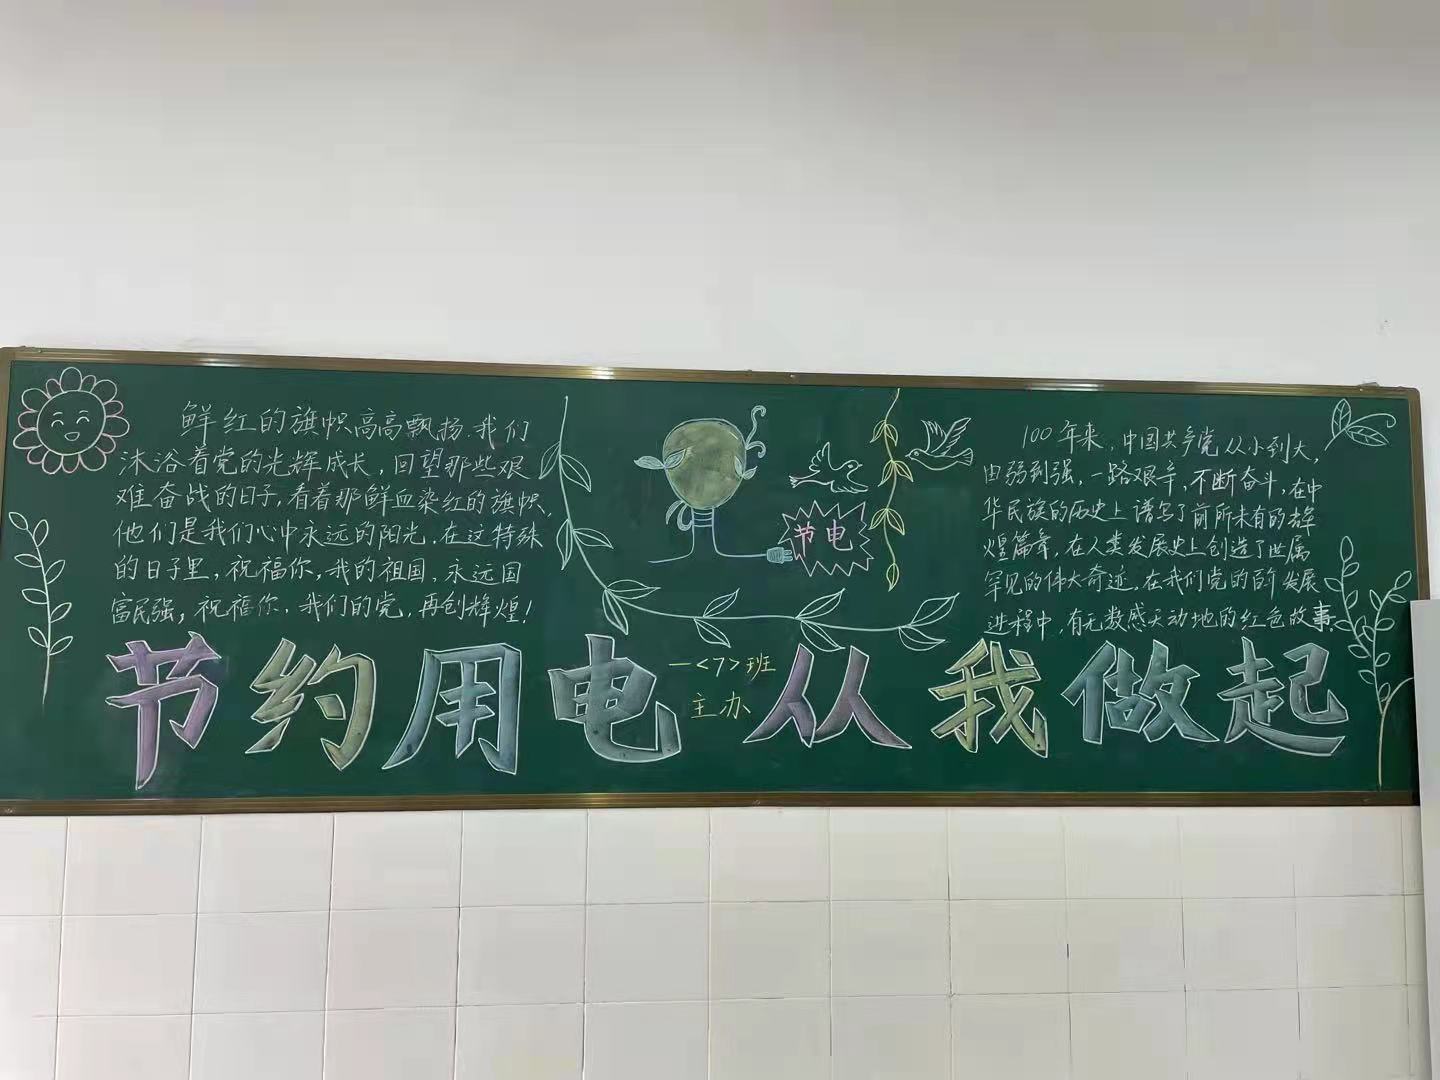 鲜红的旗帜高高飘扬.我们
沐浴着党的光辉成长,回望那些艰
难奋战的日子,看着那鲜血染红的旗帜,
他们是我们心中永远的阳光,在这特殊
的日子里,祝福你,我的祖国,永远国
富民强,祝福你,我们的党,再创辉煌!
节电
100年来,中国共产党从小到大,
由弱到强,一路艰辛,不断奋斗,在中
华民族的历史上谱写了前所未有的辉
煌篇章,在人类发展史上创造了世属
罕见的伟大奇迹,在我们党的百年发展
进程中,有无数感天动地的红色故事.
一<7>班
主办
节约用电从我做起